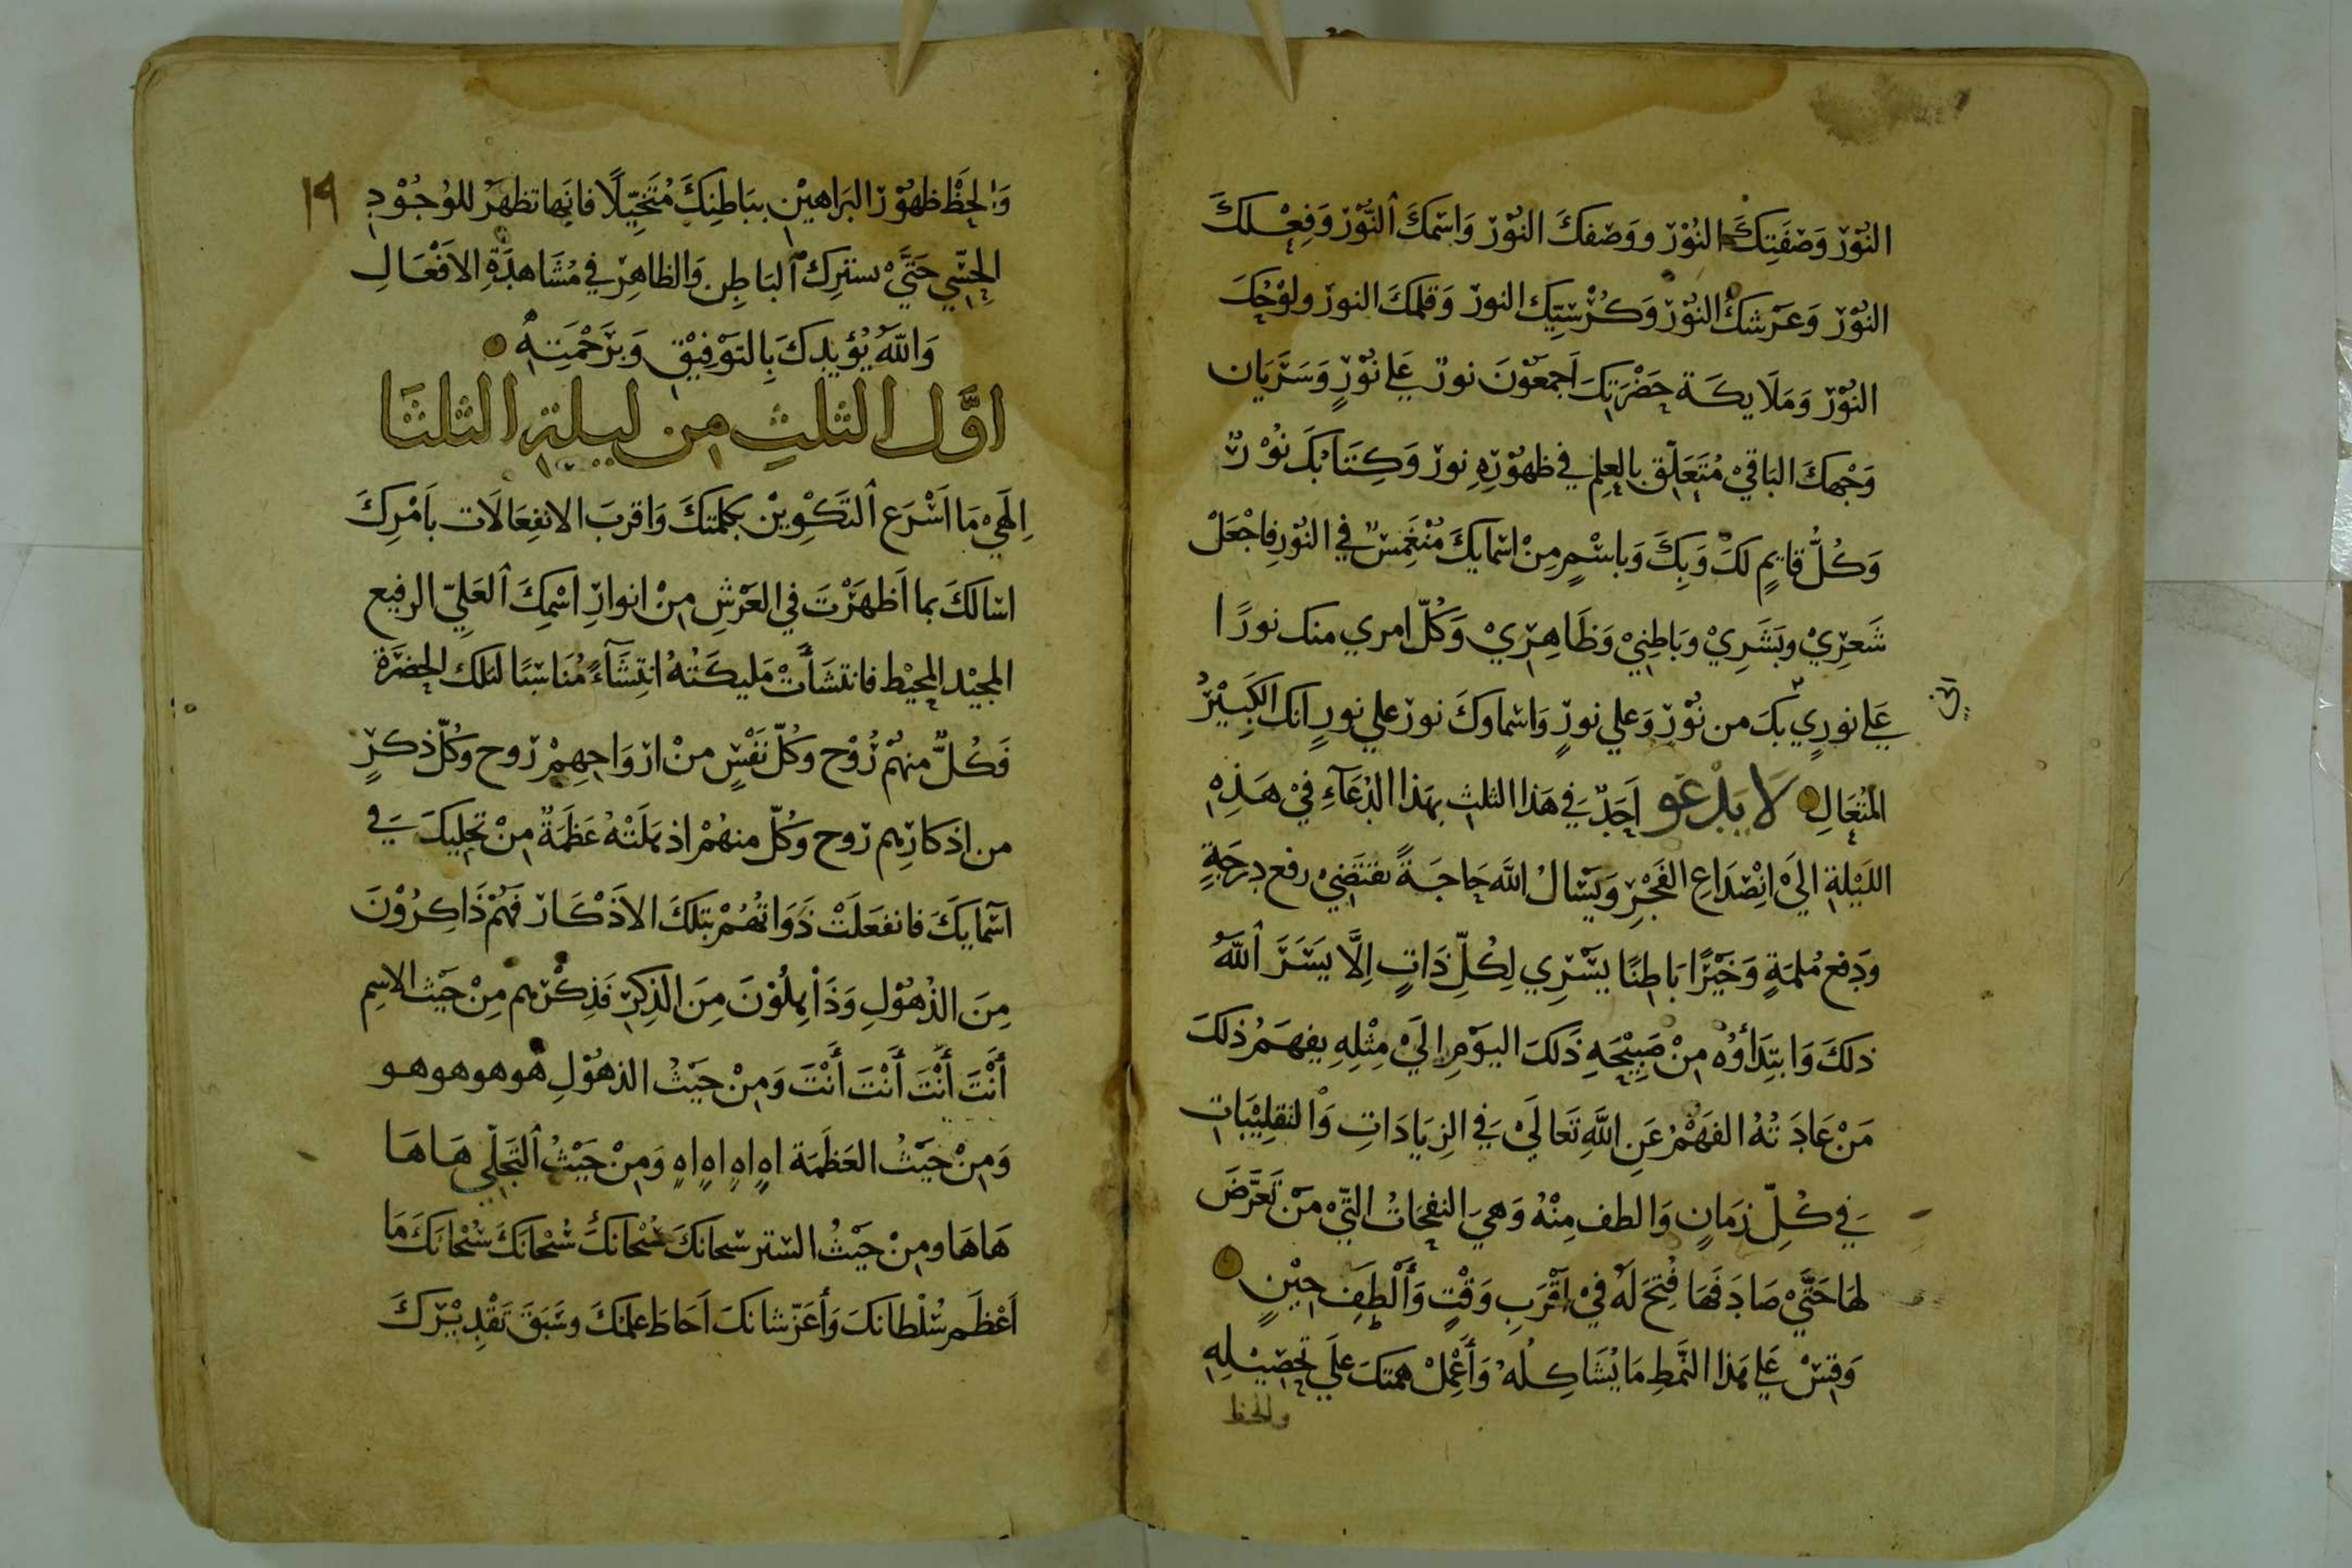 النُّوْرْ وَصْفَتِكَ النُوْرْ ووَصْفكَ النُوْرْ وَاسْمكَ النُّوْرْ وَفِعْلكَ
النُوْرْ وَعَرْشكَ النُوْرْ وَكُرْسيِّك النورْ وَقلمكَ النورْ ولَوْحُكَ
النُوْرْ وَمَلَايكَة حَضْرَتِكَ اَجمعُوْنَ نورٌ عَلي نُوْرٍ وَسَرَيَان
وَجْهكَ البَاقيْ مُتَعَلّق بِالعِلمِ في ظهُوْرِهِ نورْ وَكِتَابُكَ نُوْرٌ
وَكُلُّ قايمٍ لكَ وَبِكَ وَباسْمٍ مِنْ اسْمايكَ مُنْغَمِسٌ في النُوْرِ فاجْعَلْ
شَعرِيْ وبَشَرِيْ وبَاطِنيْ وَظَاهِرِيْ وَكُلّ امري منك نورًا
عَلي نوري بكَ من نُوْرْ وَعلي نورٍ وَاسْماوكَ نورْ علي نورٍ انك الكَبِيْرُ
المُتعَالِ لَا يَدْعَو اَحَدٌ في هَذا الثلثِ بهَذا الدُعَآءِ فيْ هَذِهِ
اللَيْلةِ اليَ انْصْدَاعِ الفَجْرِ وَيَسْالُ اللّه حَاجَةً تقتَضِيْ رفع دِرَجَةٍ
ودَفع مُلمَةٍ وَخَيْرًا بَاطِنًا يسْرِي لِكُلّ ذَاتٍ اِلَّا يَسَّرَ اللّهُ
ذلكَ وَابتِدَاؤُه مِنْ صَبِيْحَةِ ذَلكَ اليَوْمِ اليَ مِثْلِهِ يفهَمُ ذلكَ
مَنْ عَادَتُهُ الفَهْمُ عَنِ اللَّهِ تَعَاليَ في الزِيَادَاتِ وَالتقلِيْبَاتِ
في كُلِّ زمَانٍ وَالطف مِنْهُ وَهيَ النفحَاتُ التِيْ مَنْ تَعَرَّضَ
لهَا حَتَّيْ صَادَفَهَا فُتِحَ لَهُ فيْ اَقْرَبِ وَقْتٍ وَأَلْطَفِ حِيْنٍ
وَقِسْ عَلي هَذا النَّمطِ مَا يُشَاكِلُهُ وَأَعْمِلْ همتكَ عَلَي تَحصِيْلِهِ
والحظ
١٩
وَالحِظْ ظهُوْرْ البَرَاهيْنِ ببَاطِنِكَ مُتَخَيّلًا فانَها تظهَرُ للوُجُوْدِ
الحِسّي حَتَّيْ يستَرِكَ البَاطِنِ وَالظاهِرْ في مُشَاهدَةِ الاَفْعَالِ
وَاللّهُ يُؤيدكَ بِالتوَفِيْقِ وَبرَحْمَتِهِ
اوَّل الثلثِ من ليلةِ الثلثَا
اِلَهيْ مَا اَسْرَع التَكْوِيْن بكلمتكَ وَاقربَ الانفِعَالَات باَمْرِكَ
اسْالكَ بما اَظهَرْتَ في العَرْشِ مِنْ انوارِ اسْمِكَ العَلِيّ الرفيع
المجيْد المحيْط فانتشَأَتْ مَليكَتُهُ انتِشَآءً مُنَاسْبًا لتلك الحضرَة
فَكُلٌّ منهُمْ رُوْح وكُلّ نَفْسٍ منْ ارْوَاحِهِمْ رْوح وكُلّ ذكرٍ
من اذكارِهم رْوح وكُلّ منهُمْ اذهَلَتْهُ عَظمَةٌ مِنْ تجلِيكَ في
اسْمايكَ فانفعَلَتْ ذَوَاتُهُمْ بتلكَ الاذَكَارْ فَهُمْ ذَاكرُوْنَ
مِنَ الذُهُوْلِ وَذَاهِلُوْنَ مِنَ الذِكرِ فَذِكرُهم مِنْ حَيْث الاسِم
أَنْتَ أَنْتَ أَنْتَ أَنْتَ وَمِنْ حَيْثُ الذهُوْلِ هو هو هو هو
وَمِنْ حَيْثُ العَظَمَة اهٍ اهٍ اهٍ اهٍ وَمِنْ حَيْثُ التَجَلّي هَا هَا
هَا هَا ومِنْ حَيْثُ السْتر سْبحانَكَ سُبْحانَكَ سُبْحَانَكَ سُبْحَانَكَ مَا
اَعْظَم سُلْطانَكَ وَأَعَزّ شانَكَ اَحَاطَ علمُكَ وسَبَقَ تَقْدِيْرُكَ